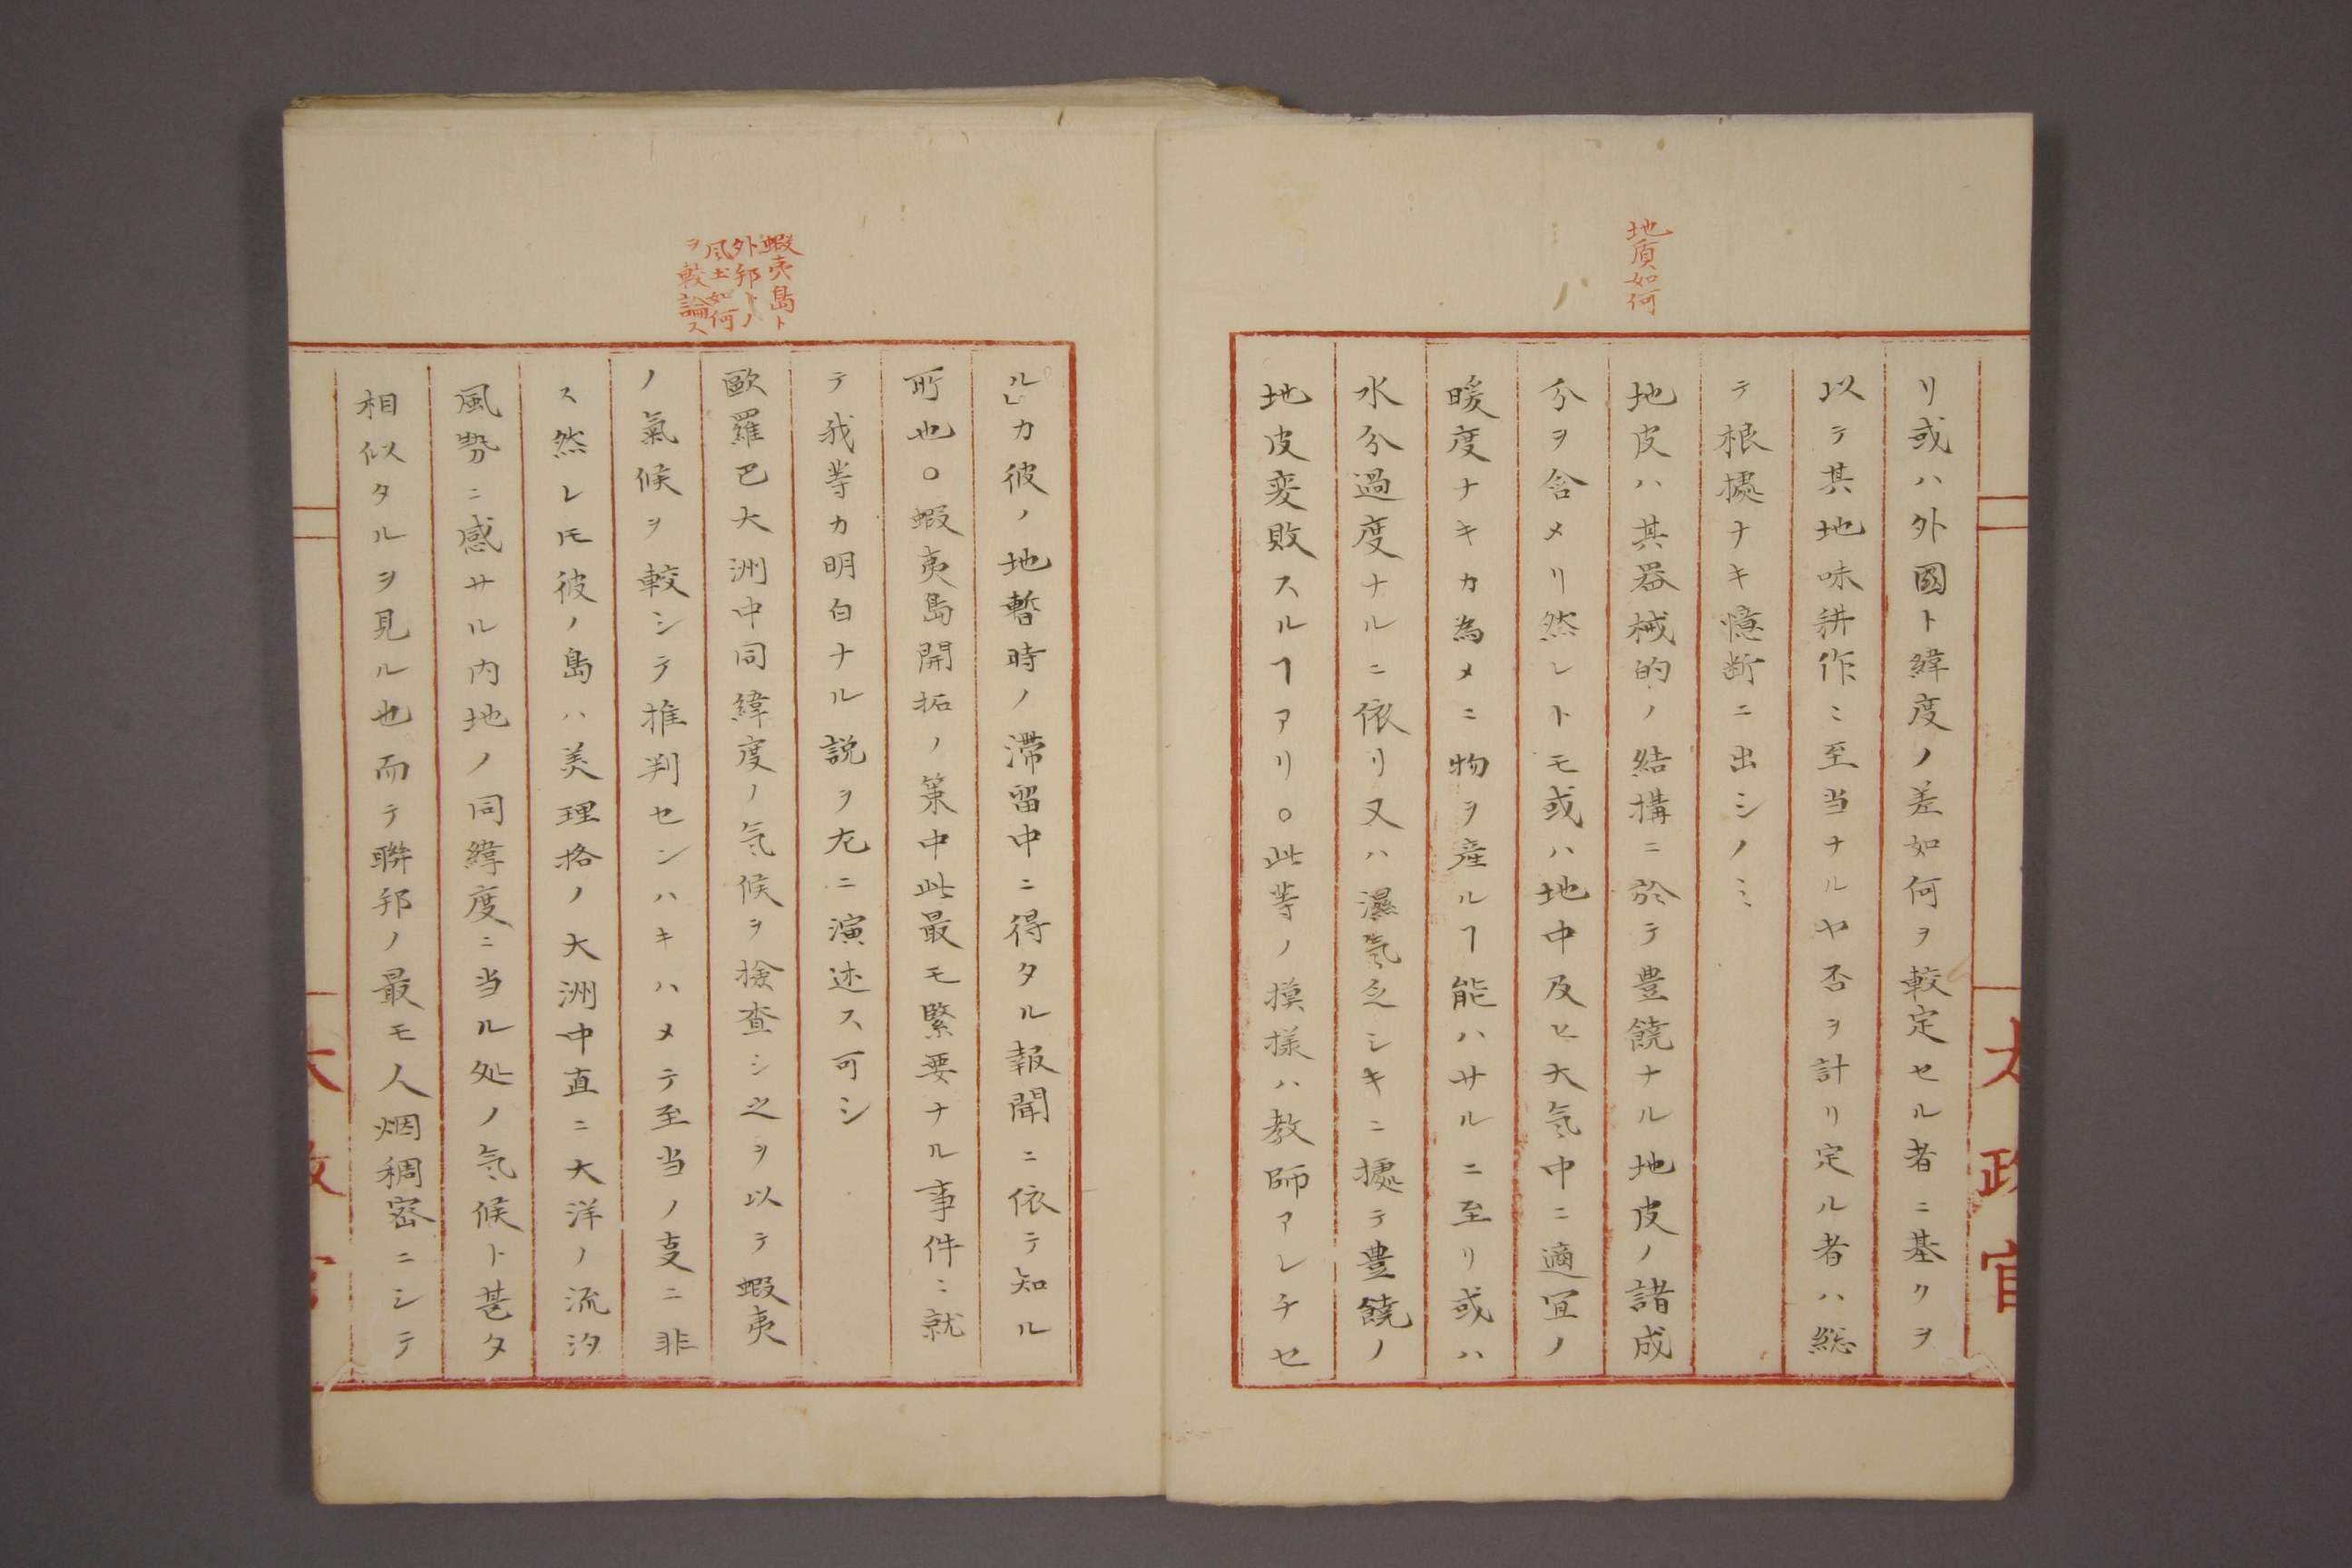 地質如何
リ或ハ外國ト緯度ノ差如何ヲ較定セル者ニ基クヲ
以テ其地味耕作ニ至当ナルヤ否ヲ計リ定ル者ハ総
テ根據ナキ憶断ニ出シノミ
地皮ハ其器械的ノ結搆ニ於テ豊饒ナル地皮ノ諸成
分ヲ含メリ然レトモ或ハ地中及ヒ大気中ニ適宜ノ
暖度ナキカ為メニ物ヲ産ルヿ能ハサルニ至リ或ハ
水分過度ナルニ依リ又ハ濕氣乏シキニ據テ豊饒ノ
地皮変敗スルヿアリ○此等ノ摸様ハ教師アレチセ
太政官
蝦夷島ト
外邦トノ
風土如何
ヲ較論ス
ル」カ彼ノ地暫時ノ滞留中ニ得タル報聞ニ依テ知ル
所也○蝦夷島開拓ノ策中此最モ緊要ナル事件ニ就
テ我等カ明白ナル説ヲ左ニ演述ス可シ
歐羅巴大洲中同緯度ノ気候ヲ撿査シ之ヲ以テ蝦夷
ノ氣候ヲ較シテ推判センハキハメテ至当ノ叓ニ非
ス然レ𪜈彼ノ島ハ美理格ノ大洲中直ニ大洋ノ流汐
風勢ニ感サル内地ノ同緯度ニ当ル処ノ気候ト甚タ
相似タルヲ見ル也而テ聯邦ノ最モ人烟稠密ニシテ